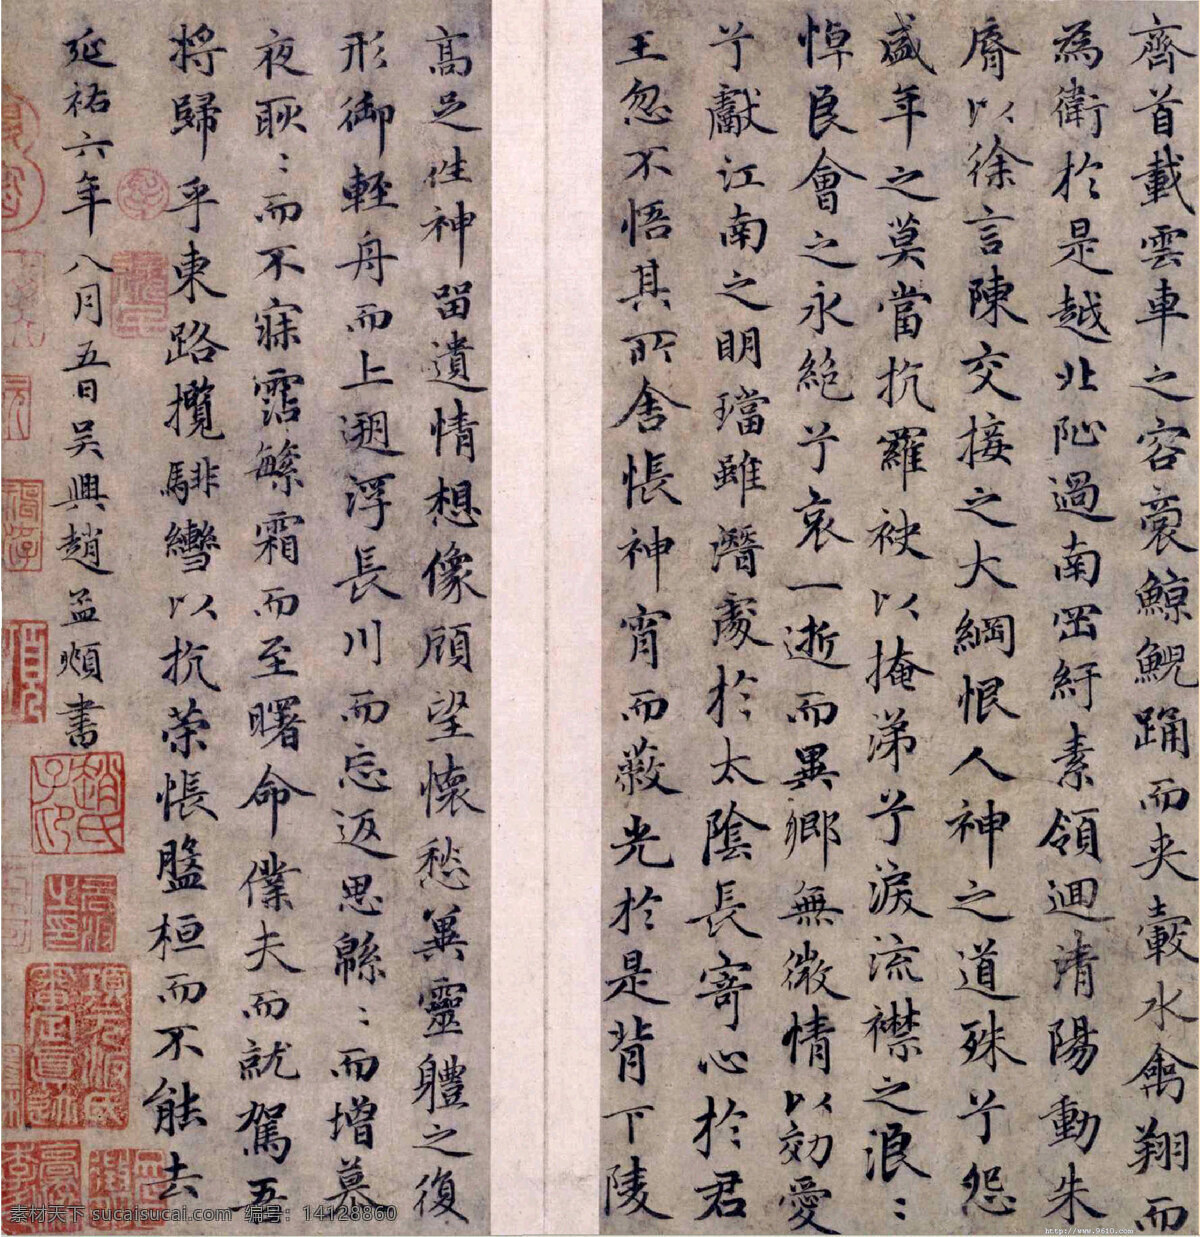 齊首載雲車之容裔鯨鯢踊而夾轂水禽翔而
為衛於是越北沚過南岡紆素領迴清陽動朱
脣以徐言陳交接之大綱恨人神之道殊兮怨
盛年之莫當抗羅袂以掩涕兮淚流襟之浪〻
悼良會之永絕兮哀一逝而異鄉無微情以効愛
兮獻江南之明璫雖潛處於太陰長寄心於君
王忽不悟其所舍悵神宵而蔽光於是背下陵
高足往神留遺情想像顧望懷愁冀靈體之復
形御輕舟而上遡浮長川而忘返思緜〻而增慕
夜耿〻而不寐霑繁霜而至曙命僕夫而就駕吾
將歸乎東路攬騑轡以抗策悵盤桓而不能去
延祐六年八月五日吳興趙孟頫書
趙氏子昂
項元汴氏審定真跡
素材天下 sucaisucai.com 编号：14128860
http://www.9610.com